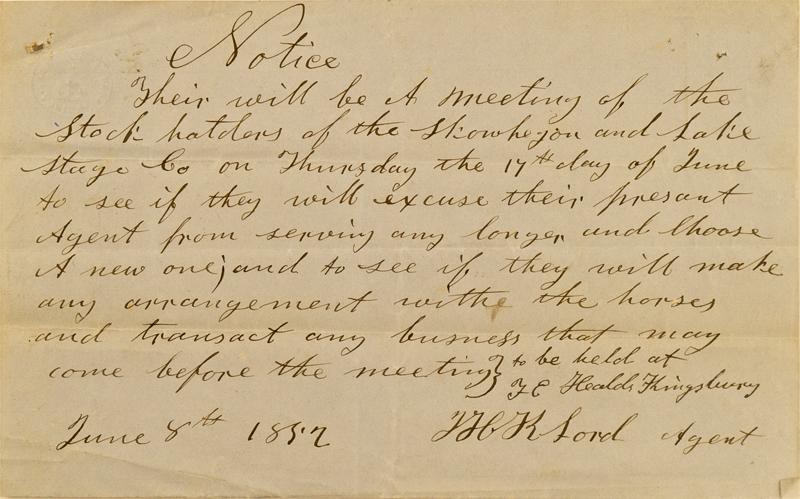 Notice
Their will be A meeting of the
Stock halders of the Skowhegon and Lake
Stage Co on Thursday the 17th day of June
to see if they will excuse their present
Agent from serving any longer and Choose
A new one; and to see if they will make
any arrangement withe the horses
and transact any busness that may
come before the meeting} to be held at
Healds Kingsbury
June 8th 1852
Lord Agent